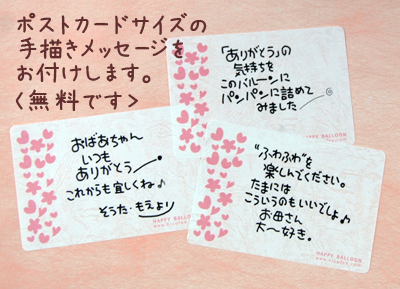 ポストカードサイズの
手描きメッセージを
お付けします。
<無料です>
「ありがとう」の
気持ちを
このバルーンに
パンパンに詰めて
みました
HAPPY BALLOON
おばあちゃん
いつも
ありがとう
これからも宜しくね♪
そうた・もえより
HAPPY BALLOON
"ふわふわ"を
楽しんでください。
たまには
こういうのもいいでしょ♪
お母さん
大〜好き。
HAPPY BALLOON